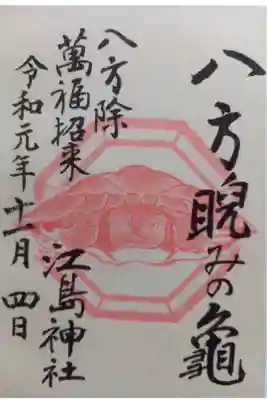 八方睨みの亀
八方除
萬福招来
江島神社
令和元年十一月四日